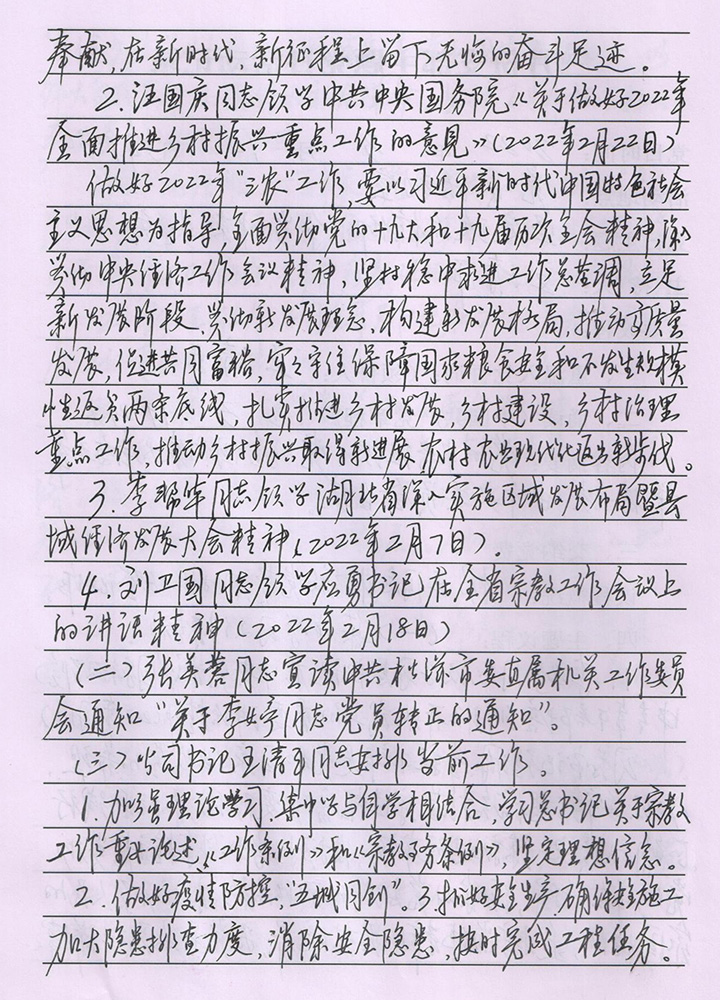 奉献,在新时代,新征程上留下无悔的奋斗足迹。
2.汪国庆同志领学中共中央国务院《关于做好2022年
全面推进乡村振兴重点工作的意见》(2022年2月22日)
做好2022年“三农”工作,要以习近平新时代中国特色社会
主义思想为指导,全面贯彻党的十九大和十九届历次全会精神,深入
贯彻中央经济工作会议精神,坚持稳中求进工作总基调,立足
新发展阶段、贯彻新发展理念、构建新发展格局,推动高质量
发展,促进共同富裕,牢牢守住保障国家粮食安全和不发生规模
性返贫两条底线,扎实推进乡村发展,乡村建设,乡村治理
重点工作,推动乡村振兴取得新进展,农村农业现代化迈出新步伐。
3.李帮华同志领学湖北省深入实施区域发展布局暨县
域经济发展大会精神(2022年2月7日)。
4.刘卫国同志领学应勇书记在全省宗教工作会议上
的讲话精神(2022年2月18日)
(二)张美蓉同志宣读中共松滋市委直属机关工作委员
会通知“关于李婷同志党员转正的通知”。
(三)公司书记王清平同志安排当前工作。
1.加强理论学习、集中学与自学相结合,学习总书记关于宗教
工作重要论述、《工作条例》和《宗教事务条例》,坚定理想信念。
2.做好疫情防控、“五城同创”。3.抓好安全生产,确保安全施工
加大隐患排查力度,消除安全隐患,按时完成工程任务。